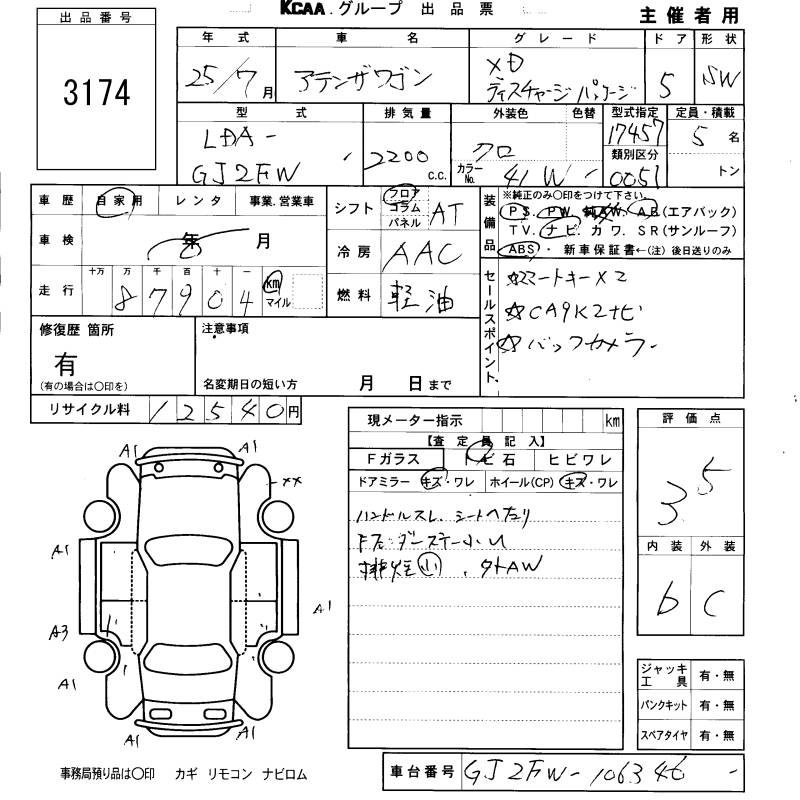 KCAA.グループ 出品票
主催者用
出品番号
3174
年式 車名 グレード ドア 形状
25/7月 アテンザワゴン XD ディスチャージパッケージ 5 SW
型式 排気量 外装色 色替 型式指定 定員・積載
LDA-
GJ2FW 2200 c.c. クロ カラーNo. 41W 17457 5名
類別区分
0051 トン
車歴 自家用 レンタ 事業.営業車
車検 年 月
走行 十万 万 千 百 十 一
87904 km マイル
シフト フロア コラム パネル AT
冷房 AAC
燃料 軽油
装備品 ※純正のみ〇印をつけて下さい。
PS. PW. 純AW. AB(エアバック)
TV. ナビ. カワ. SR(サンルーフ)
ABS・ 新車保証書←(注)後日送りのみ
セールスポイント
☆スマートキーX2
☆CA9K2ナビ
☆バックカメラー
修復歴 箇所
有
(有の場合は〇印を)
注意事項
名変期日の短い方 月 日まで
リサイクル料 12540円
現メーター指示 km
【査定員記入】
Fガラス トビ石 ヒビワレ
ドアミラー キズ・ワレ ホイール(CP) キズ・ワレ
ハンドルスレ. シートヘタリ
排煙小 . 外AW
評価点
3.5
内装 外装
b C
ジャッキ工具 有・無
パンクキット 有・無
スペアタイヤ 有・無
A1 A1
XX
A1
A1
A3
A1
A1 A1
事務局預り品は〇印 カギ リモコン ナビロム
車台番号 GJ2FW-106346